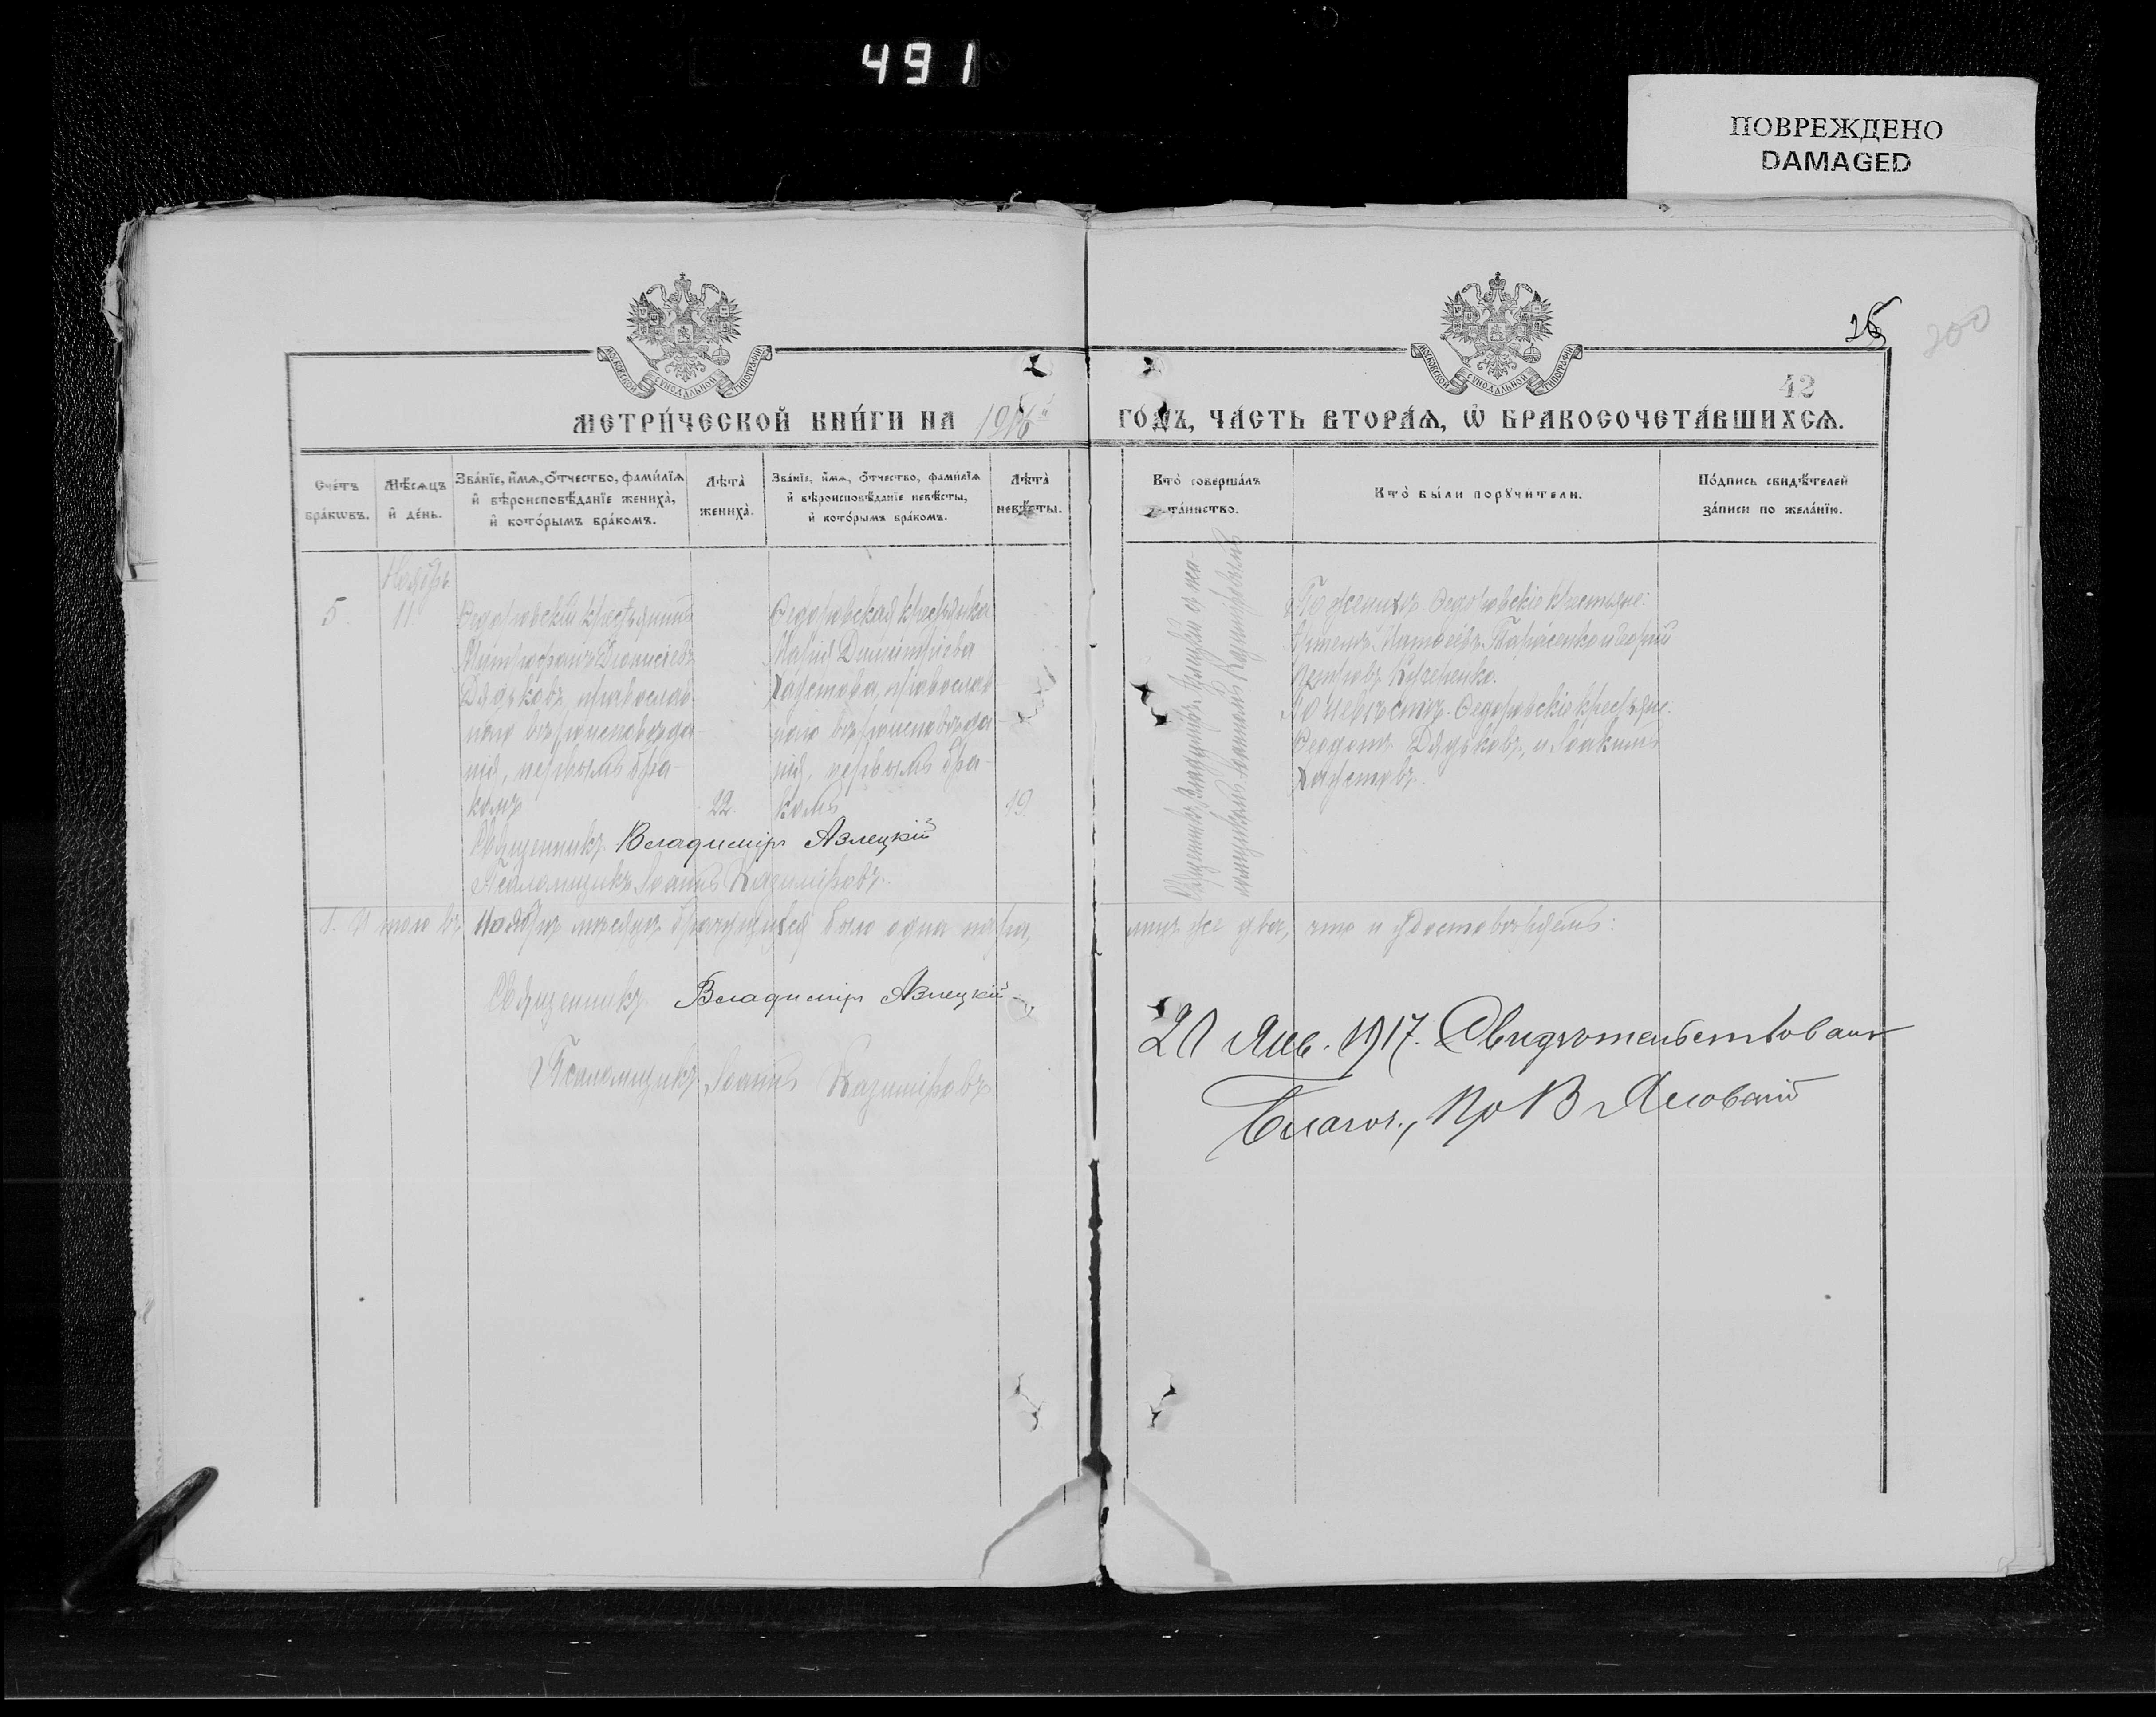 491
ПОВРЕЖДЕНО
DAMAGED
МОСКОВСКОЙ СѴНОДАЛЬНОЙ ТИПОГРАФІИ
МОСКОВСКОЙ СѴНОДАЛЬНОЙ ТИПОГРАФІИ
26
200
42
МЕТРИ́ЧЕСКОЙ КНИ́ГИ НА 1916й ГО́ДЪ, ЧА́СТЬ ВТОРА́Я, Ѡ БРАКОСОЧЕТА́ВШИХСЯ.
Сче́тъ бра́кѡвъ.
Мѣ́сяцъ и҆ де́нь.
Зва́нїе, и҆́мя, ѻ҆́тчество, фами́лїя
и҆ вѣроисповѣ́данїе жениха̀,
и҆ кото́рымъ бра́комъ.
Лѣта̀ жениха̀.
Зва́нїе, и҆́мя, ѻ҆́тчество, фами́лїя
и҆ вѣроисповѣ́данїе невѣ́сты,
и҆ кото́рымъ бра́комъ.
Лѣта̀ невѣ́сты.
Кто̀ соверша́лъ та́инство.
Кто̀ бы́ли порꙋчи́тели.
По́дпись свидѣ́телей за́писи по жела́нїю.
Ноябрь
5.
11.
Ѳедоровскій крестьянинъ
Митрофанъ Діонисіевъ
Дядьковъ, православ-
наго вѣроисповѣда-
нія, первымъ бра-
комъ
22.
Ѳедоровская крестьянка
Марія Димитріева
Харетова, православ-
наго вѣроисповѣда-
нія, первымъ бра-
комъ
19.
Священникъ Владиміръ Азлецкій съ пса-
ломщикомъ Іоанномъ Казиміровымъ
По женихѣ: Ѳедоровскіе крестьяне:
Артемъ Матѳеевъ Тарасенко и Георгій
Петровъ Кучеренко.
По невѣстѣ: Ѳедоровскіе крестьяне:
Ѳеодотъ Дядьковъ, и Іоакимъ
Харетовъ.
Священникъ Владиміръ Азлецкій
Псаломщикъ Іоаннъ Казиміровъ.
Итого въ Ноябрѣ мѣсяцѣ брачущихся было одна пара,
лицъ же два, что и удостовѣряемъ:
Священникъ Владиміръ Азлецкій
Псаломщикъ Іоаннъ Казиміровъ
20 Янв. 1917. Свидѣтельствовалъ
Благоч., Пр В